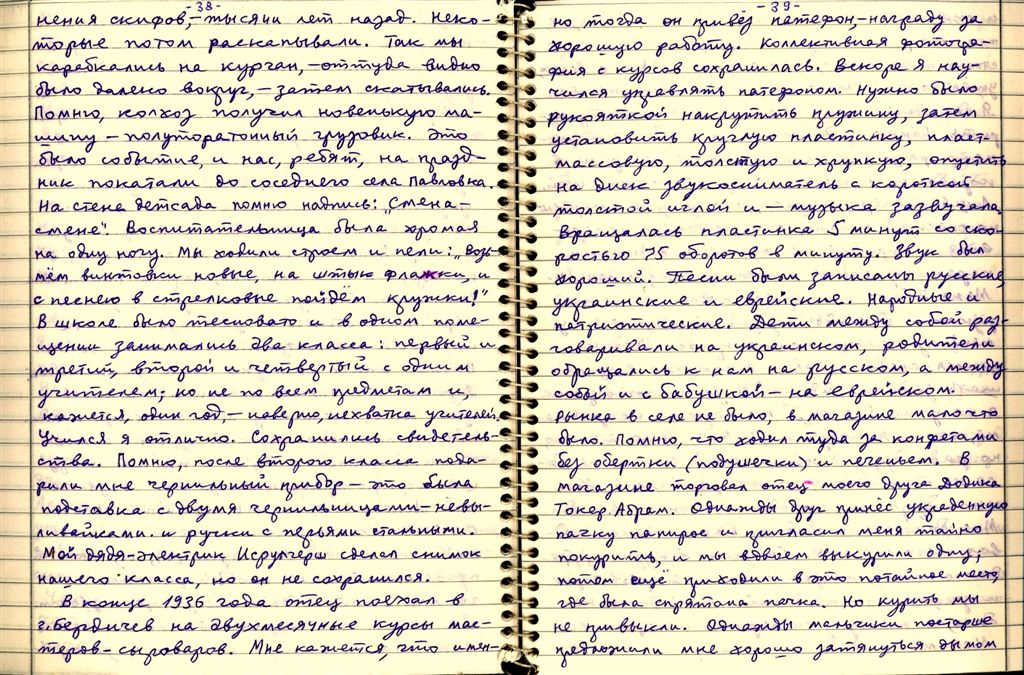 -38-
нения скифов, – тысячи лет назад. Неко-
торые потом раскапывали. Так мы
карабкались на курган, – оттуда видно
было далеко вокруг, – затем скатывались.
Помню, колхоз получил новенькую ма-
шину – полуторатонный грузовик. Это
было событие, и нас, ребят, на празд-
ник покатали до соседнего села Павловка.
На стене детсада помню надпись: „Смена –
смене". Воспитательница была хромая
на одну ногу. Мы ходили строем и пели: „Возь-
мём винтовки новые, на штык флажки, и
с песнею в стрелковые пойдём кружки!"
В школе было тесновато и в одном поме-
щении занимались два класса: первый и
третий, второй и четвертый с одним
учителем; но не по всем предметам и,
кажется, один год, – наверно, нехватка учителей.
Учился я отлично. Сохранились свидетель-
ства. Помню, после второго класса пода-
рили мне чернильный прибор – это была
подставка с двумя чернильницами-невы-
ливайками. и ручки с перьями стальными.
Мой дядя-электрик Исрулгерш сделал снимок
нашего класса, но он не сохранился.
В конце 1936 года отец поехал в
г. Бердичев на двухмесячные курсы мас-
теров-сыроваров. Мне кажется, что имен-
-39-
но тогда он привёз патефон, – награду за
хорошую работу. Коллективная фотогра-
фия с курсов сохранилась. Вскоре я нау-
чился управлять патефоном. Нужно было
рукояткой накрутить пружину, затем
установить круглую пластинку, пласт-
массовую, толстую и хрупкую, опустить
на диск звукосниматель с короткой
толстой иглой и – музыка зазвучала.
Вращалась пластинка 5 минут со ско-
ростью 75 оборотов в минуту. Звук был
хороший. Песни были записаны русские,
украинские и еврейские. Народные и
патриотические. Дети между собой раз-
говаривали на украинском, родители
обращались к нам на русском, а между
собой и с бабушкой – на еврейском.
Рынка в селе не было, в магазине мало что
было. Помню, что ходил туда за конфетами
без обертки (подушечки) и печеньем. В
магазине торговал отец моего друга Додика
Токер Абрам. Однажды друг принёс украденную
пачку папирос и пригласил меня тайно
покурить, и мы вдвоем выкурили одну;
потом ещё приходили в это потайное место,
где была спрятана пачка. Но курить мы
не привыкли. Однажды мальчики постарше
предложили мне хорошо затянуться дымом